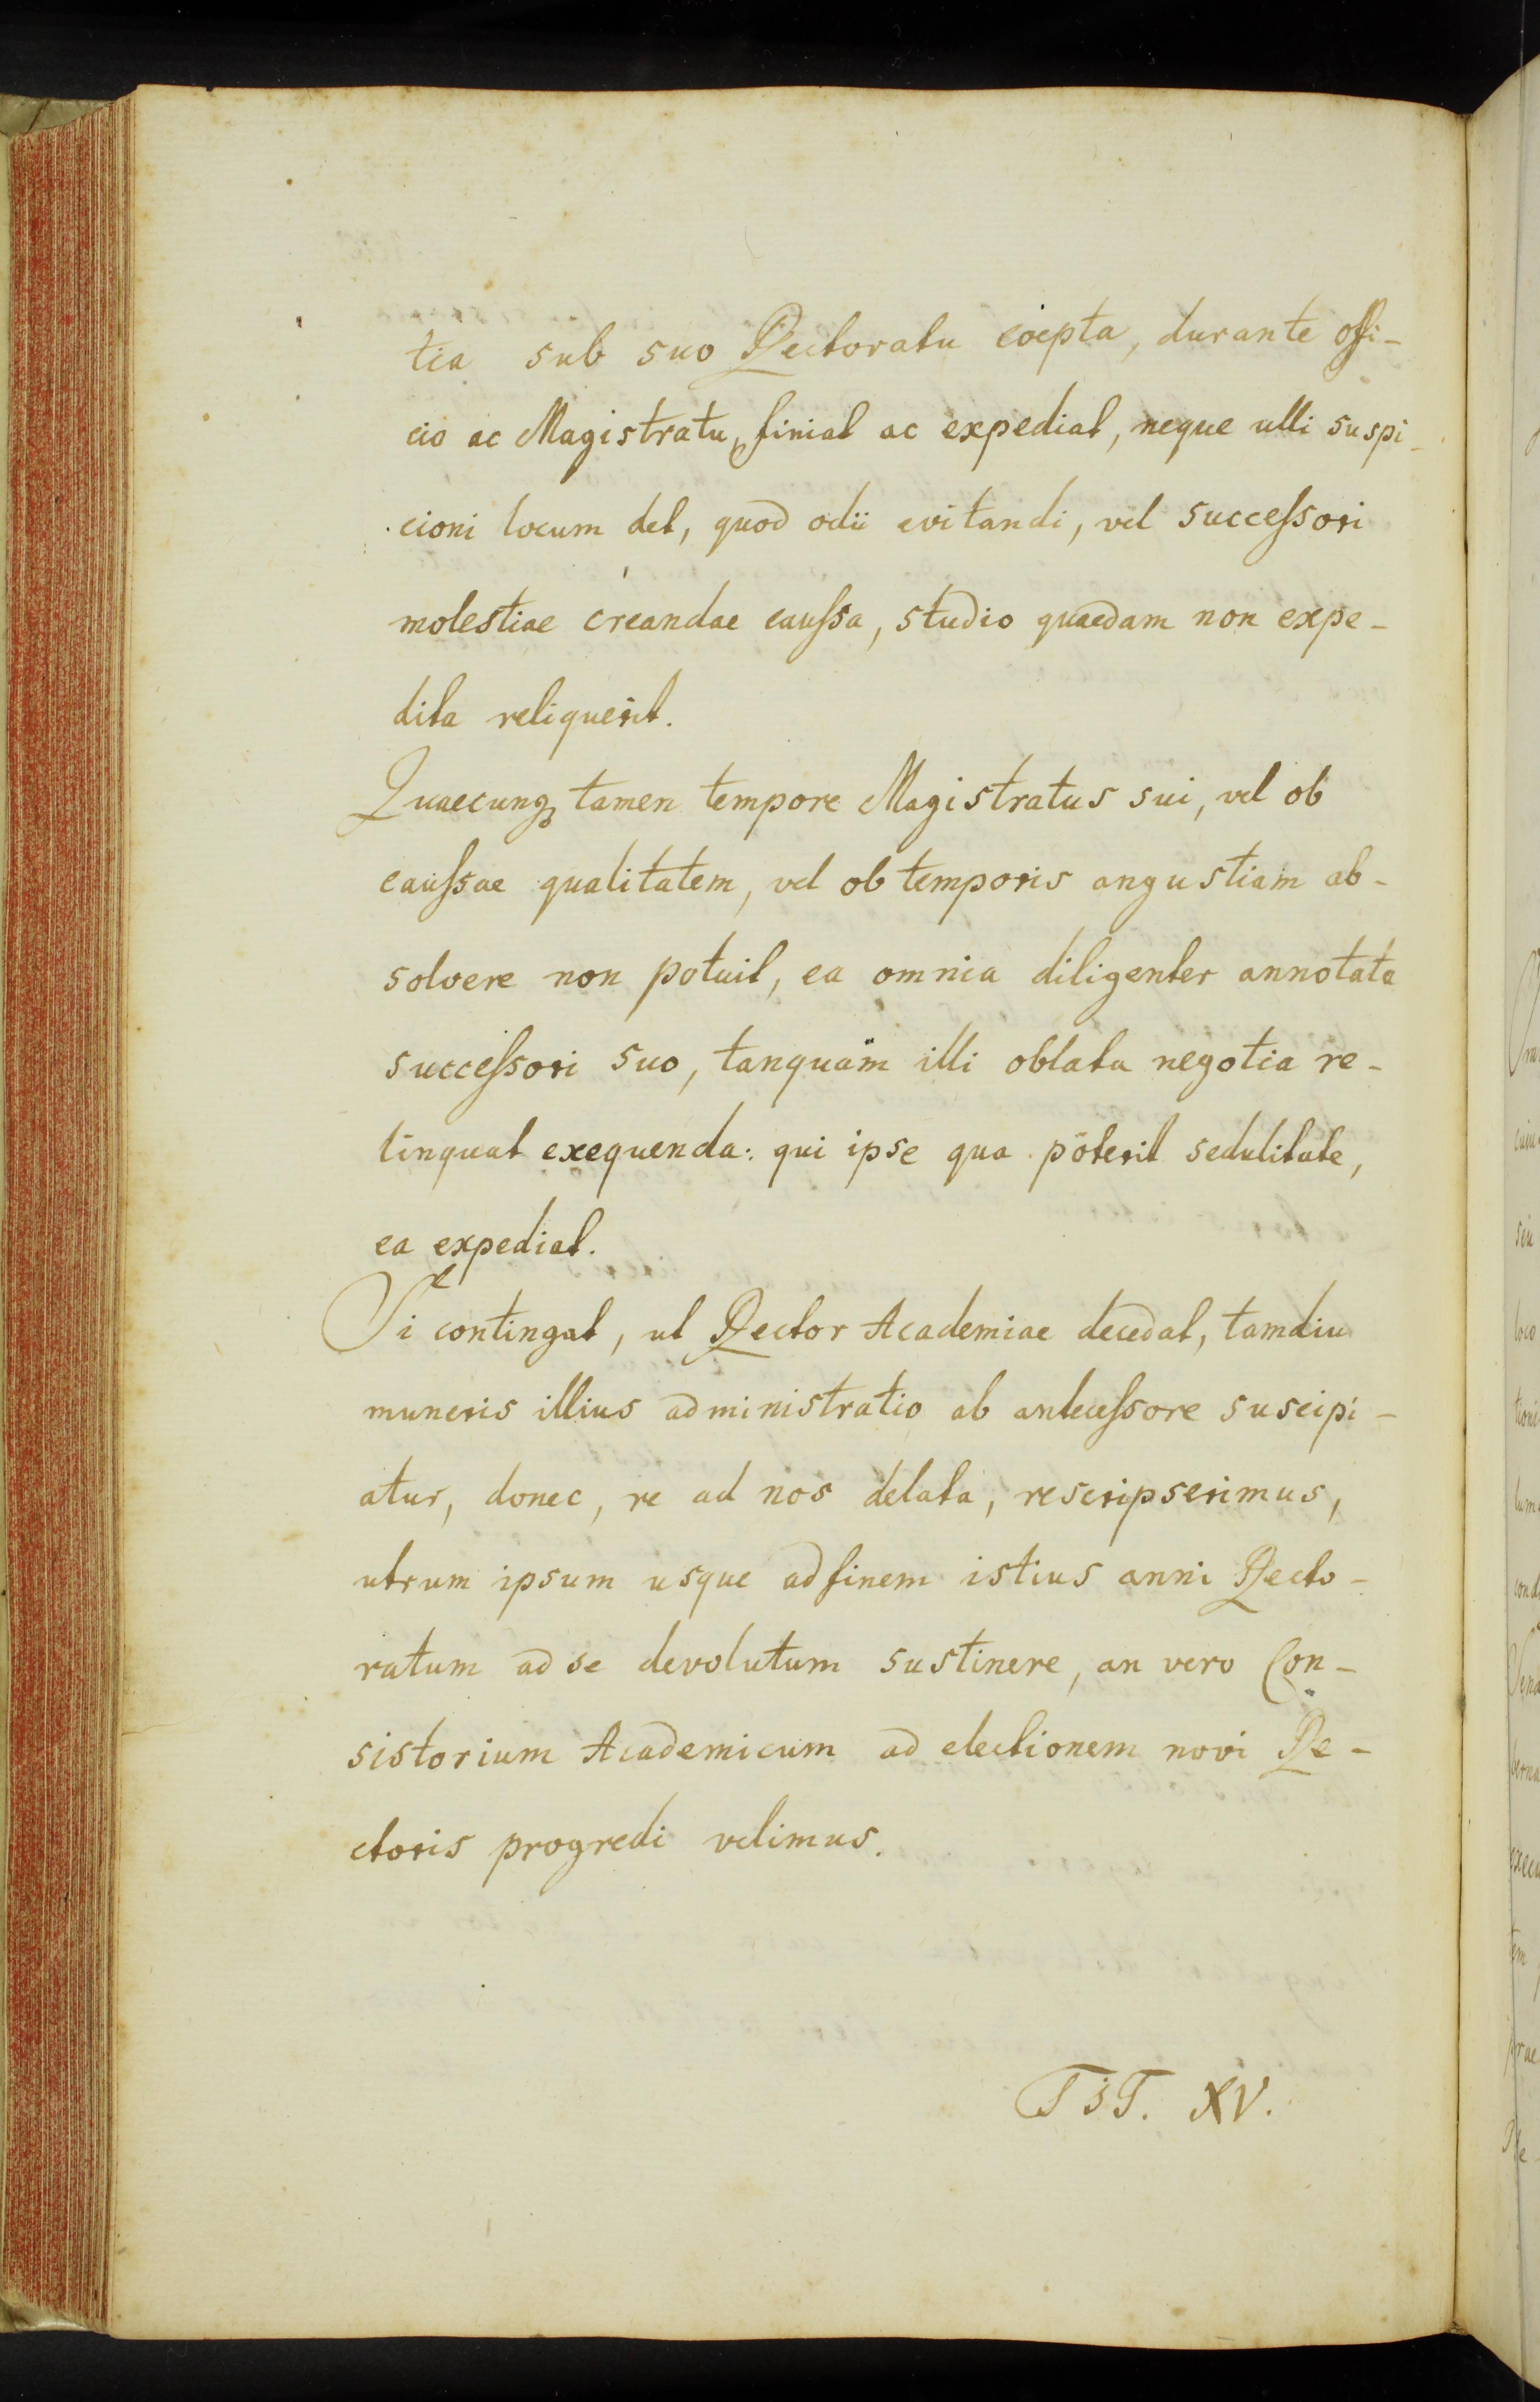 tia sub suo Rectoratu coepta, durante offi-
cio ac Magistratu, finiat ac expediat, neque ulli suspi-
cioni locum det, quod odii evitandi, vel succeſsori
molestiae creandae cauſsa, studio quaedam non expe-
dita reliquerit.
Quaecunqꝫ tamen tempore Magistratus sui, vel ob
cauſsae qualitatem, vel ob temporis angustiam ab-
solvere non potuit, ea omnia diligenter annotata
succeſsori suo, tanquam illi oblata negotia re-
linquat exequenda: qui ipse qua poterit sedulitate,
ea expediat.
Si contingat, ut Rector Academiae decedat, tamdiu
muneris illius administratio ab anteceſsore suscipi-
atur, donec, re ad nos delata, rescripserimus,
utrum ipsum usque ad finem istius anni Recto-
ratum ad se devolutum sustinere, an vero Con-
sistorium Academicum ad electionem novi Re-
ctoris progredi velimus.
TIT. XV.